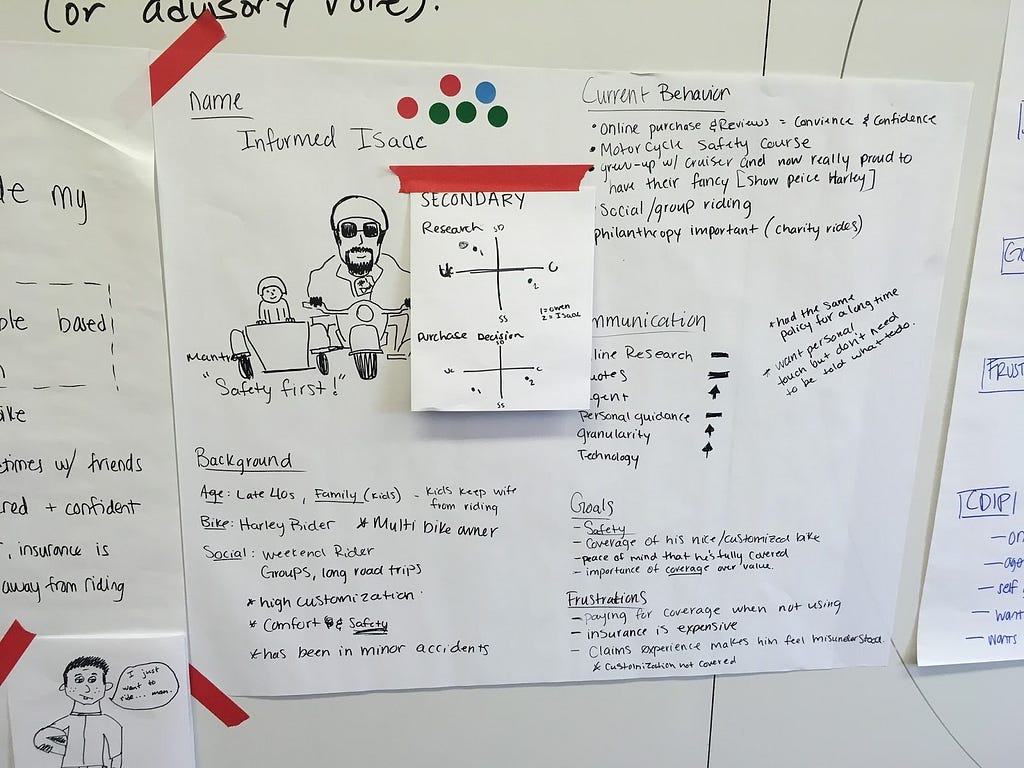 (or advisory role).
Name
Informed Isaac
Mantra
"Safety first!"
Background
Age: Late 40s, Family (kids) - kids keep wife
from riding
Bike: Harley Rider * Multi bike owner
Social: weekend Rider
Groups, long road trips
* high customization
* Comfort & Safety
* has been in minor accidents
SECONDARY
Research
SD
UC
C
SS
1
2
1 = owen
2 = Isaac
Purchase Decision
SD
UC
C
SS
1
2
Current Behavior
• Online purchase & Reviews = Convience & Confidence
• Motorcycle Safety Course
• grew-up w/ cruiser and now really proud to
have their fancy [Show peice Harley]
Social/group riding
philanthropy important (charity rides)
mmunication
line Research
uotes
gent
Personal guidance
granularity
Technology
* had the same
policy for a long time
* want personal
touch but don't need
to be told what to do.
Goals
- Safety
- Coverage of his nice/customized bike
- peace of mind that he's fully covered
- importance of coverage over value.
Frustrations
- paying for coverage when not using
- insurance is expensive
- Claims experience makes him feel misunderstood.
* Customization not covered
de my
ple based
ike
etimes w/ friends
red + confident
, insurance is
away from riding
I just
want to
ride... man.
GO
FRUST
CDIP
- on
- age
- self
- want
- wants